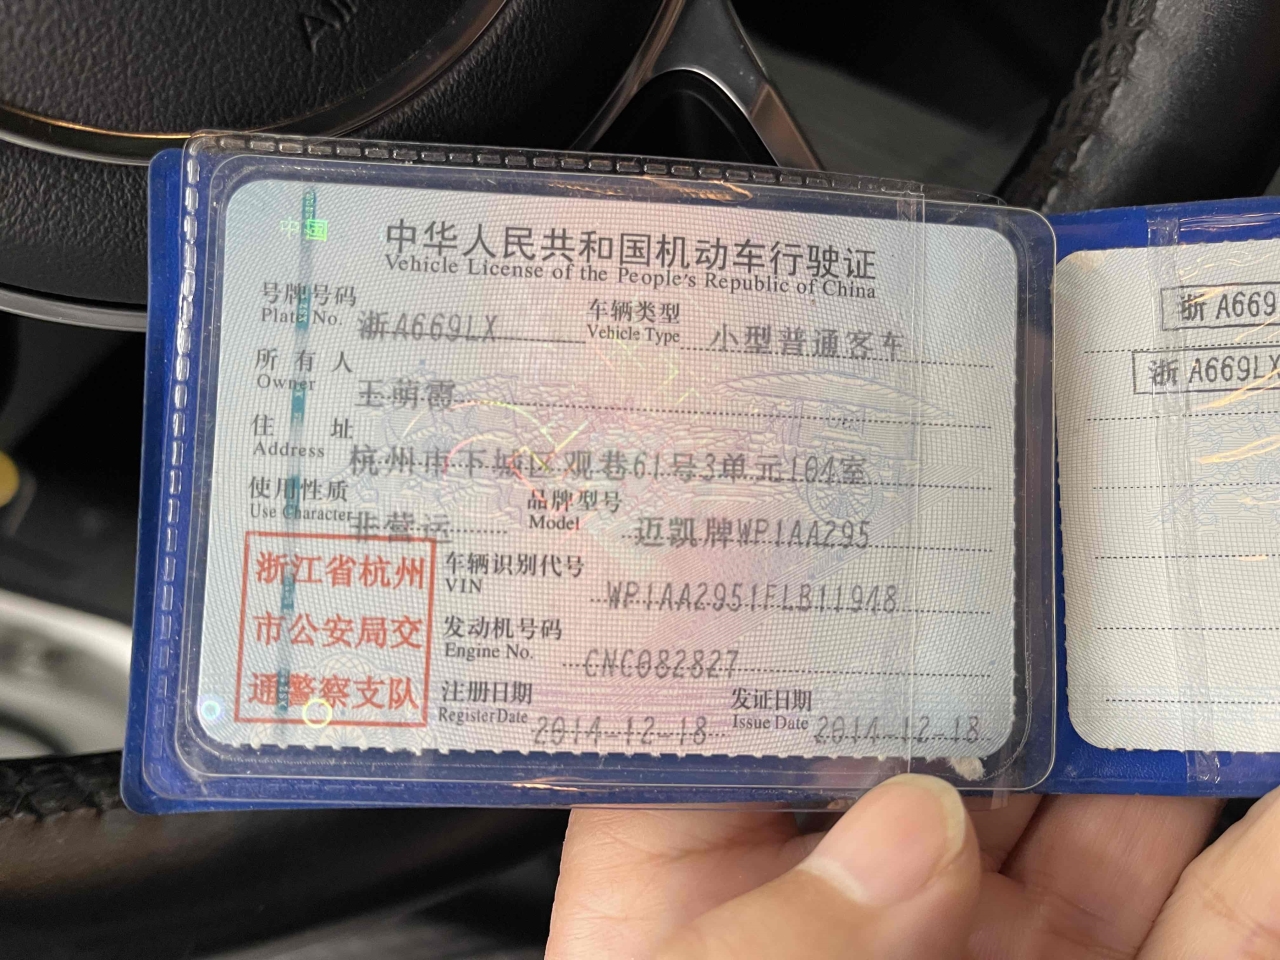 AIR
中国
中华人民共和国机动车行驶证
Vehicle License of the People's Republic of China
号牌号码 浙A669LX 车辆类型 小型普通客车
Plate No. Vehicle Type
所有人 王萌霞
Owner
住址 杭州市下城区观巷61号3单元104室
Address
使用性质 非营运 品牌型号 迈凯牌WP1AA295
Use Character Model
浙江省杭州
市公安局交
通警察支队
车辆识别代号 WP1AA2951FLB11948
VIN
发动机号码 CNC082827
Engine No.
注册日期 2014-12-18 发证日期 2014-12-18
Register Date Issue Date
浙A669
浙A669LX